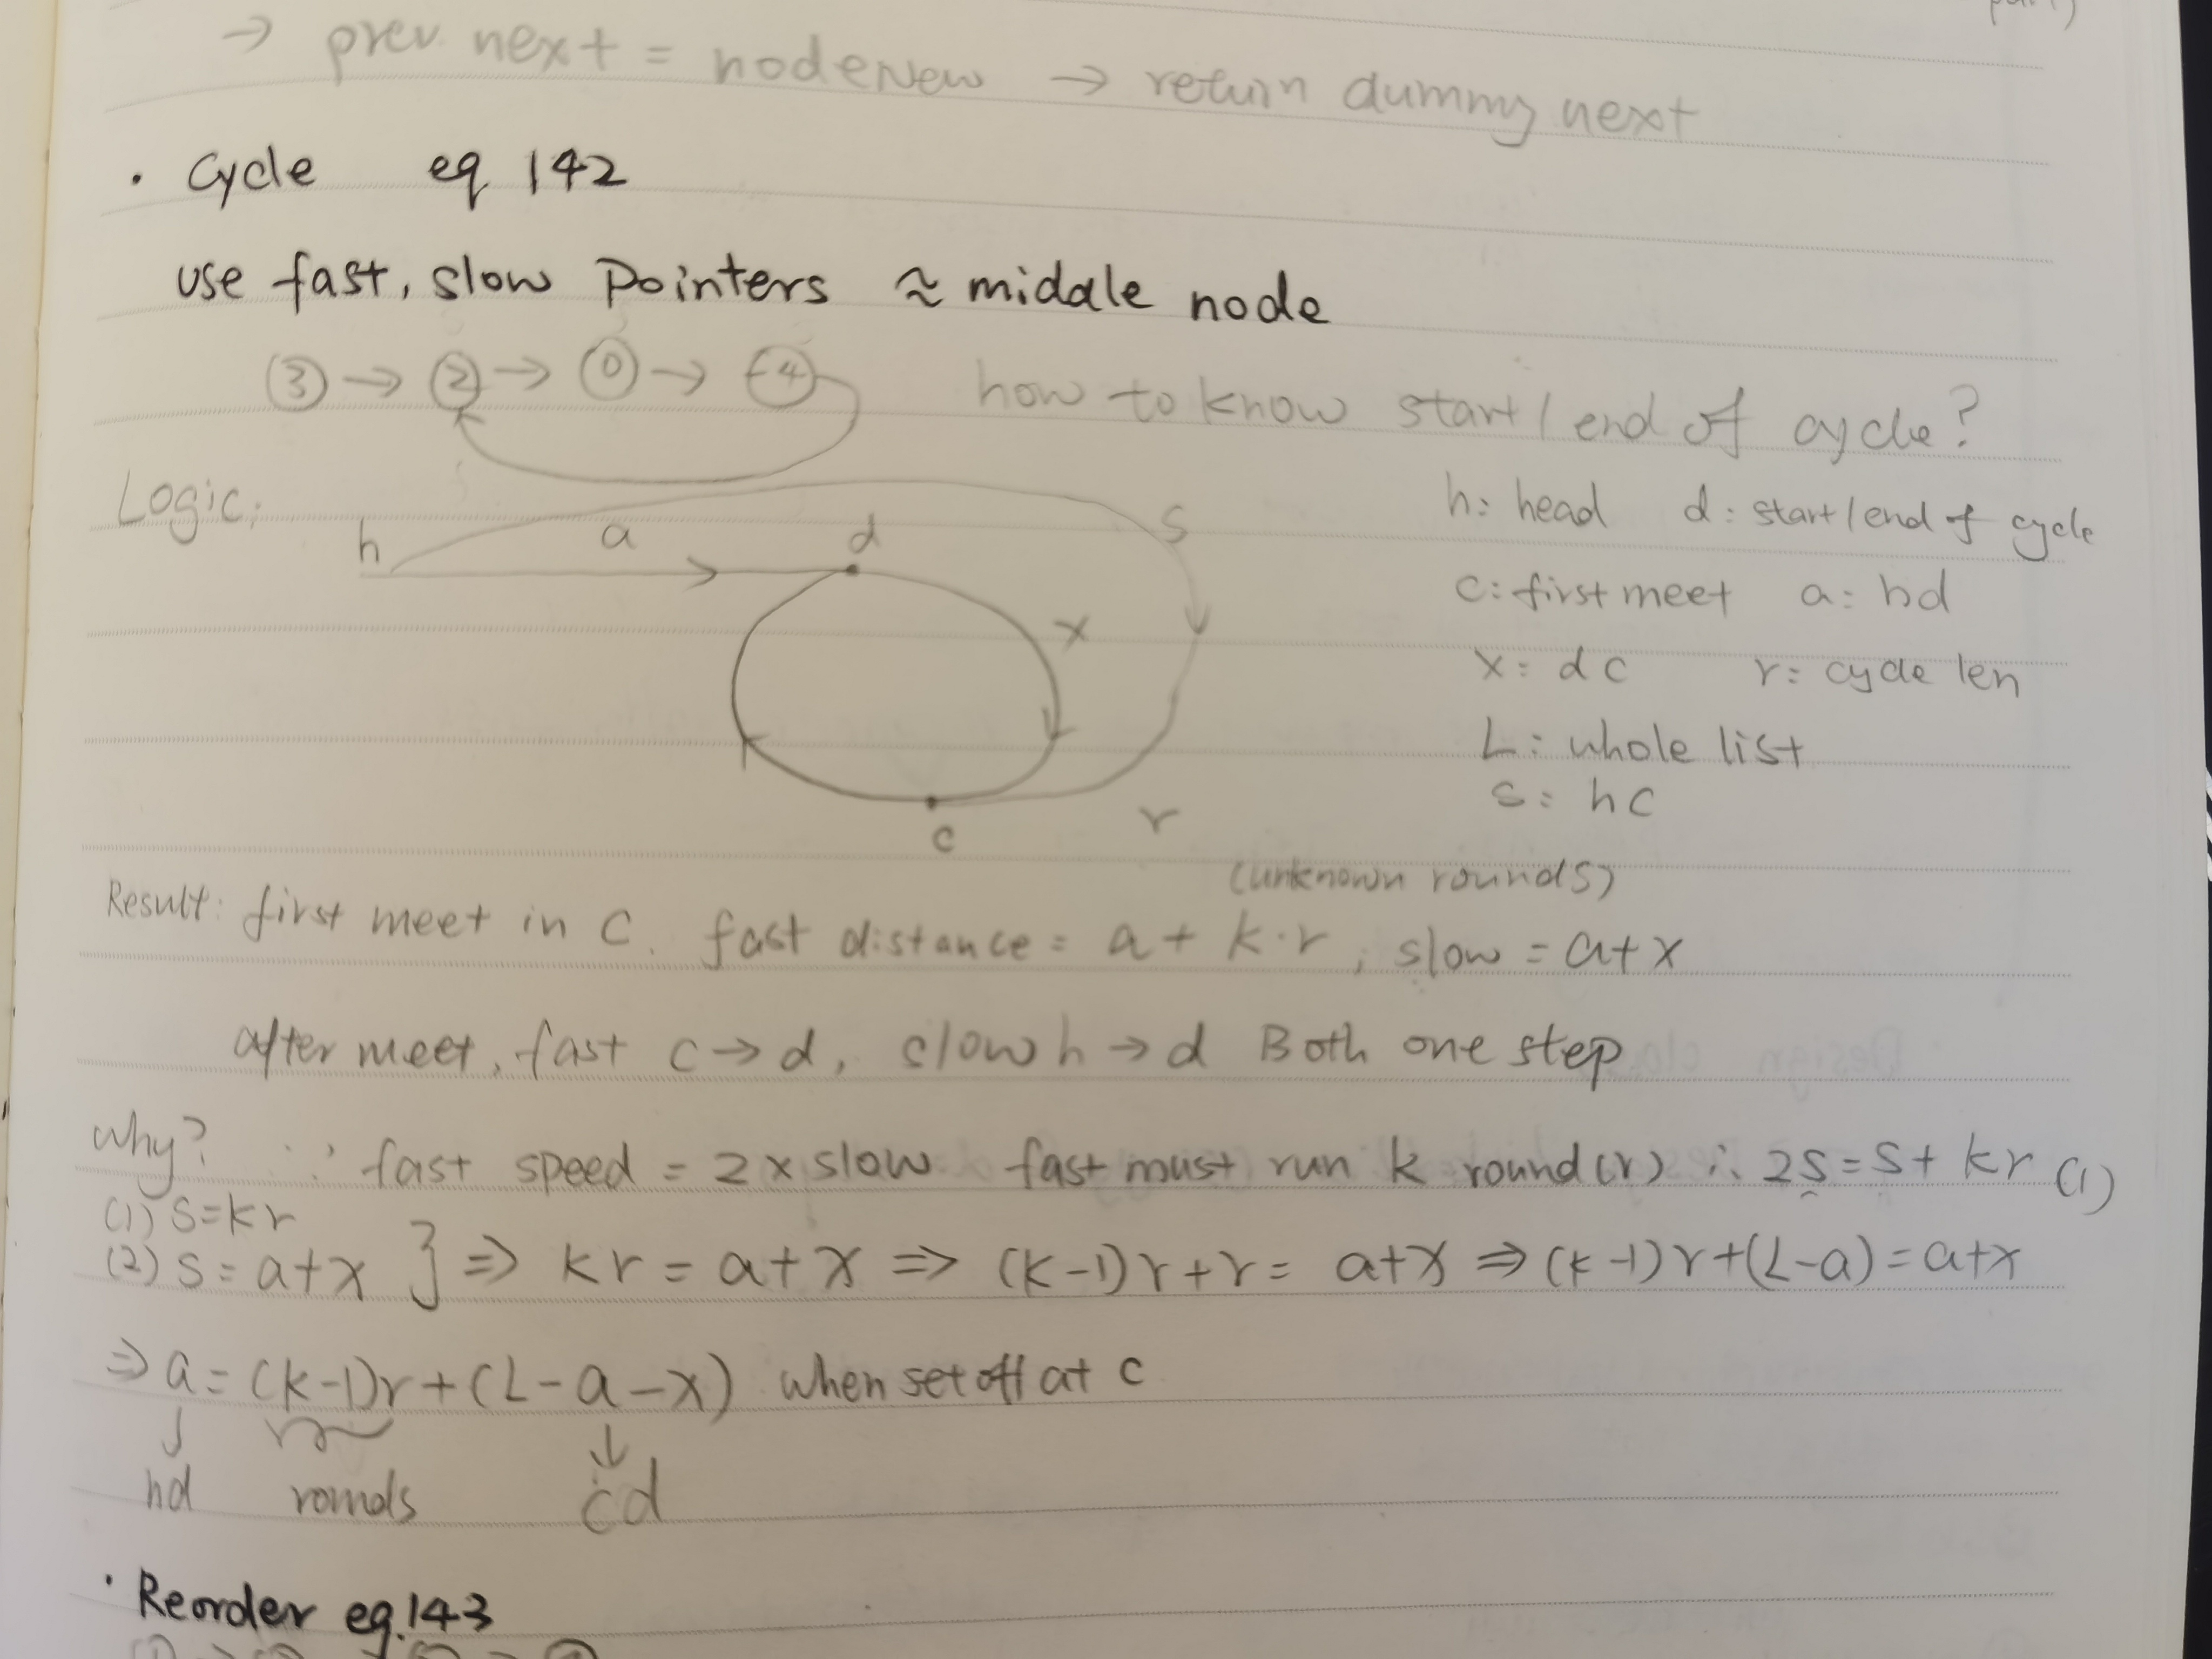 → prev. next = nodeNew → return dummy next
· Cycle eq 142
use fast, slow pointers ≈ middle node
③ → ② → ⓪ → -4 how to know start/end of cycle?
Logic:
h a d x s c r
h: head d: start/end of cycle
c: first meet a: hd
x: dc r: cycle len
L: whole list
s: hc
(unknown rounds)
Result: first meet in c. fast distance = a + k·r, slow = a+x
after meet, fast c→d, slow h→d Both one step
why? ∵ fast speed = 2 x slow fast must run k round(r) ∴ 2s = s + kr (1)
(1) s=kr
(2) s = a+x } ⇒ kr = a+x ⇒ (k-1)r+r = a+x ⇒ (k-1)r+(L-a) = a+x
⇒ a = (k-1)r + (L-a-x) when set off at c
↓ ↓
hd rounds cd
· Reorder eg.143